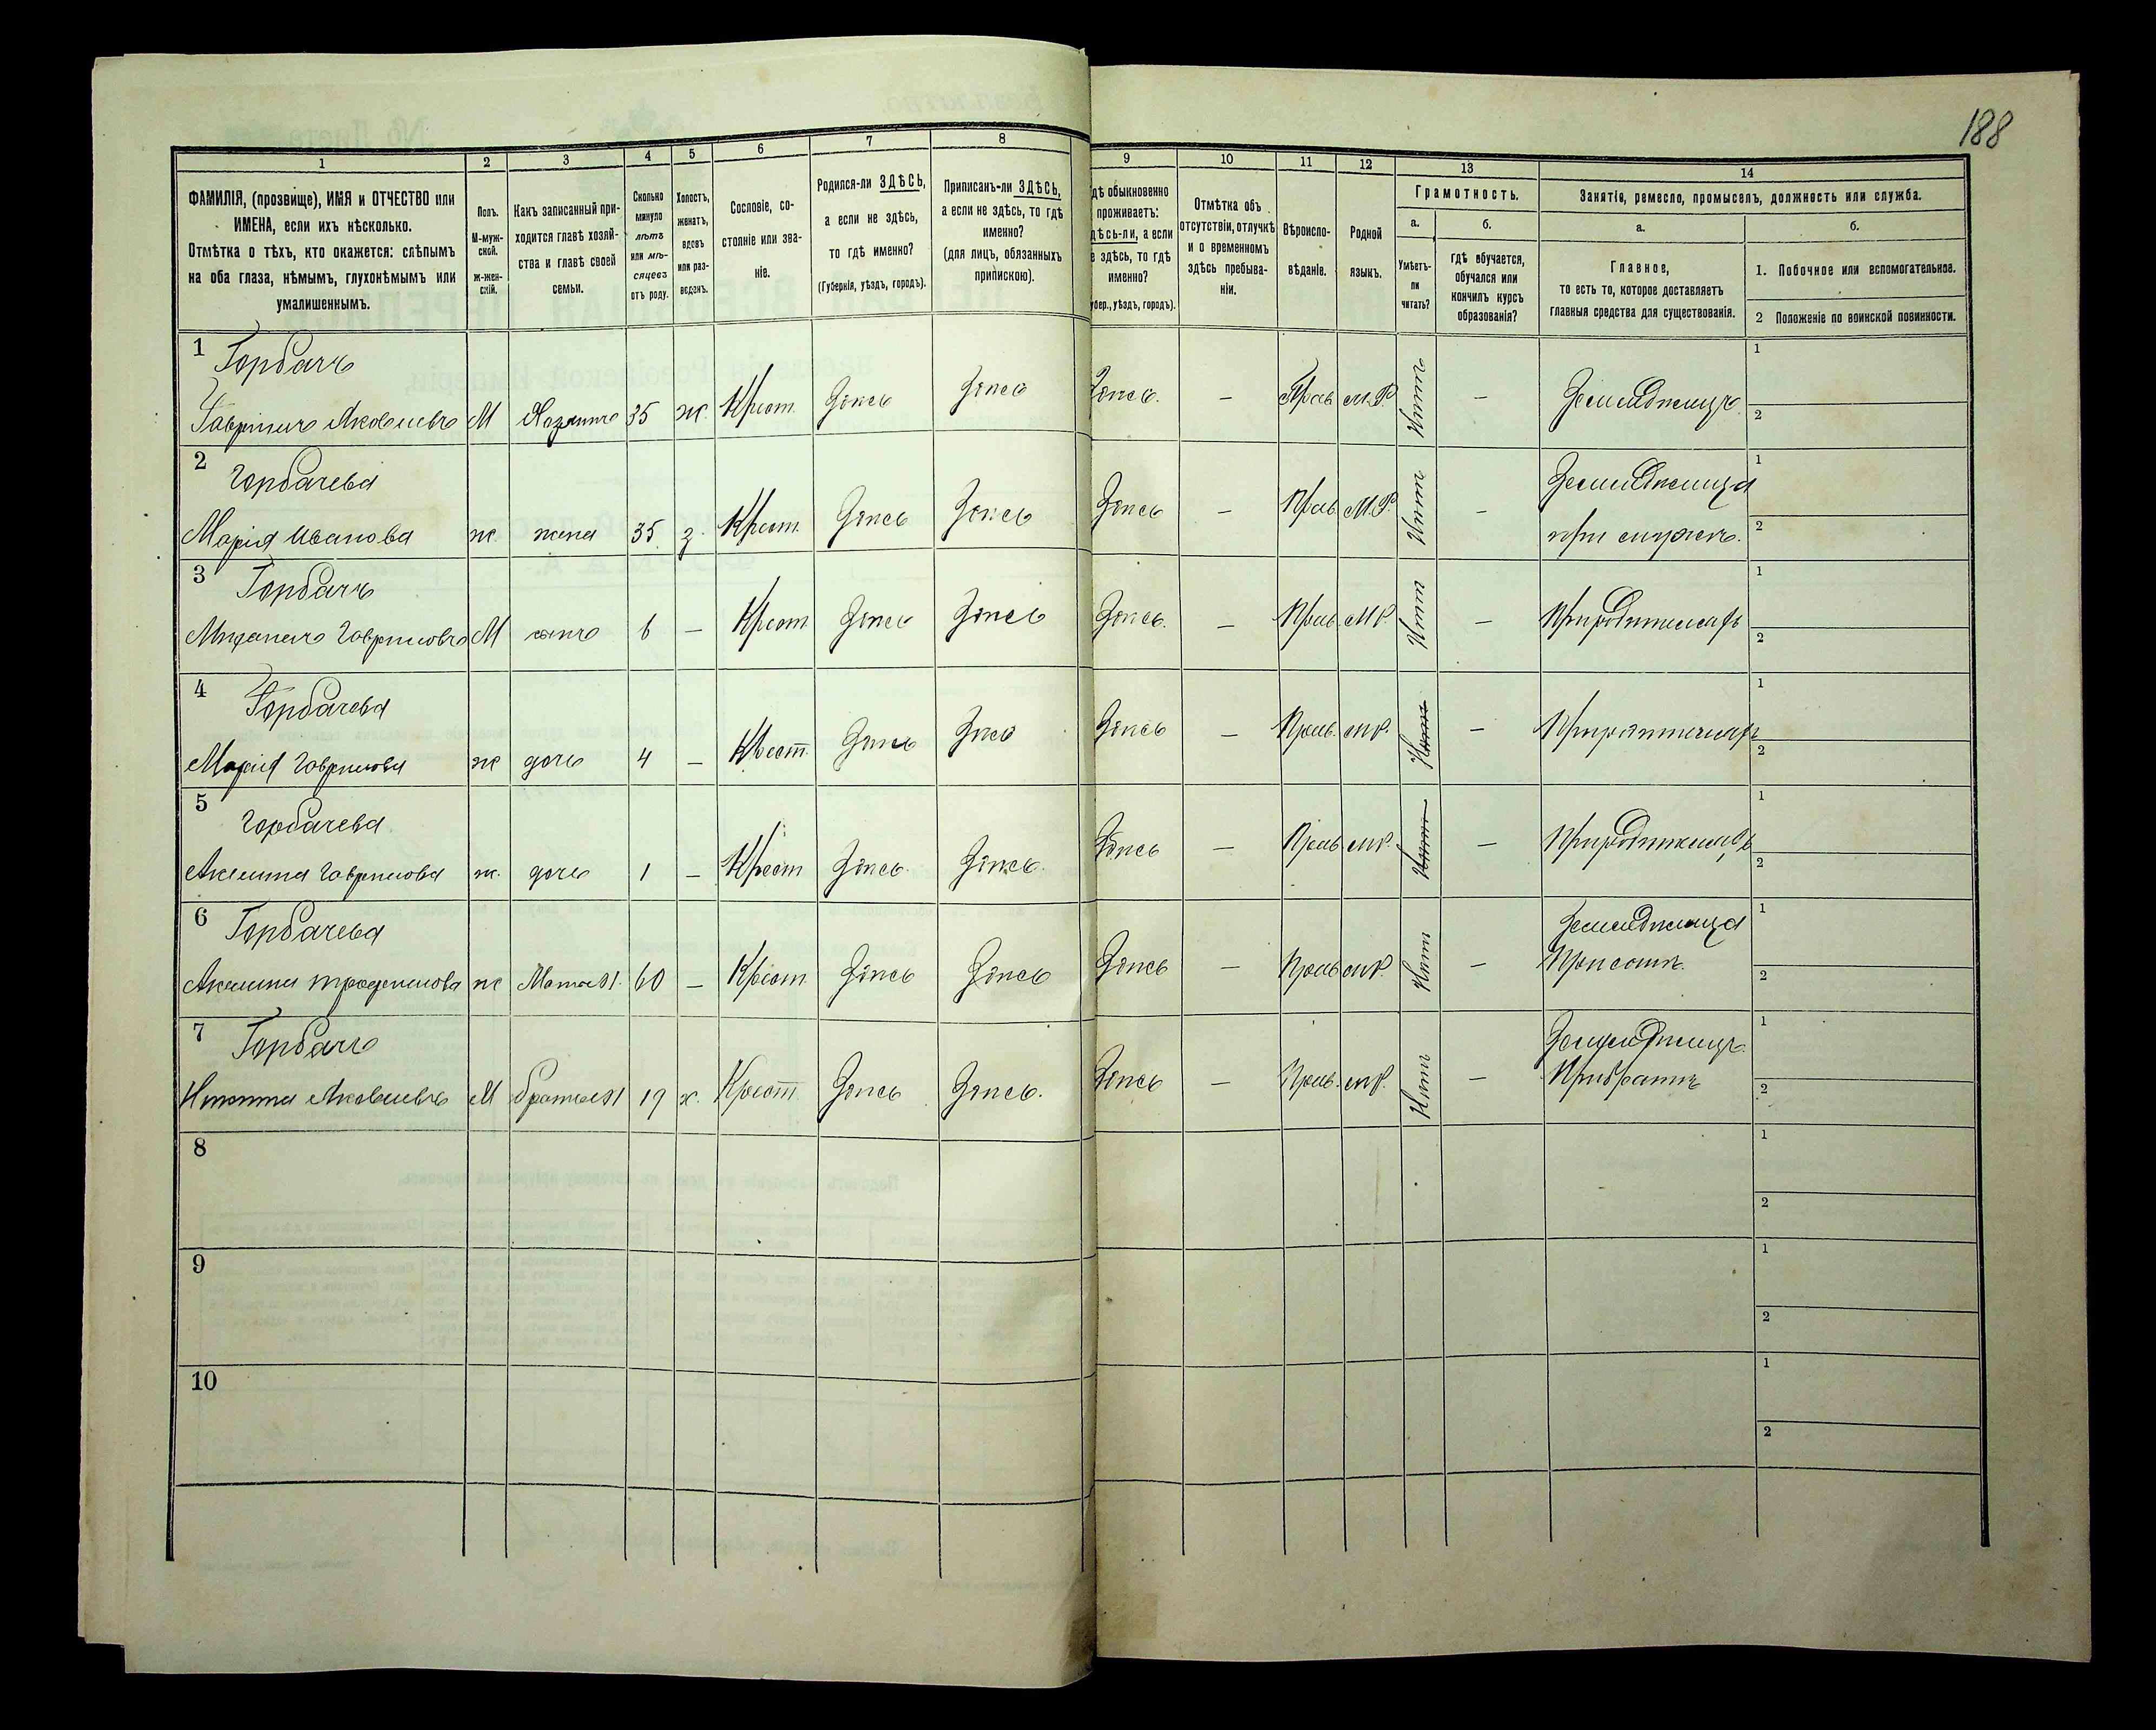 188
1
2
3
4
5
6
7
8
9
10
11
12
13
14
ФАМИЛІЯ, (прозвище), ИМЯ и ОТЧЕСТВО или
ИМЕНА, если ихъ нѣсколько.
Отмѣтка о тѣхъ, кто окажется: слѣпымъ
на оба глаза, нѣмымъ, глухонѣмымъ или
умалишеннымъ.
Полъ.
М-муж-
ской.
Ж-жен-
скій.
Какъ записанный при-
ходится главѣ хозяй-
ства и главѣ своей
семьи.
Сколько
минуло
лѣтъ
или мѣ-
сяцевъ
отъ роду.
Холостъ,
женатъ,
вдовъ
или раз-
веденъ.
Сословіе, со-
стояніе или зва-
ніе.
Родился-ли ЗДѢСЬ,
а если не здѣсь,
то гдѣ именно?
(Губернія, уѣздъ, городъ).
Приписанъ-ли ЗДѢСЬ,
а если не здѣсь, то гдѣ
именно?
(для лицъ, обязанныхъ
припискою).
дѣ обыкновенно
проживаетъ:
дѣсь-ли, а если
е здѣсь, то гдѣ
именно?
убер., уѣздъ, городъ).
Отмѣтка объ
отсутствіи, отлучкѣ
и о временномъ
здѣсь пребыва-
ніи.
Вѣроиспо-
вѣданіе.
Родной
языкъ.
Грамотность.
а.
Умѣетъ-
ли
читать?
б.
гдѣ обучается,
обучался или
кончилъ курсъ
образованія?
Занятіе, ремесло, промыселъ, должность или служба.
а.
Главное,
то есть то, которое доставляетъ
главныя средства для существованія.
б.
1. Побочное или вспомогательное.
2 Положеніе по воинской повинности.
1 Горбачъ
Гавріилъ Яковлевъ М Хозяинъ 35 ж. Крест. Здѣсь Здѣсь Здѣсь. — Прав. М.Р. Нѣтъ — Земледѣлецъ. 1 2
2 Горбачева
Марія Иванова ж жена 35 з. Крест. Здѣсь Здѣсь Здѣсь — Прав. М.Р. Нѣтъ — Земледѣлица
при мужѣ. 1 2
3 Горбачъ
Михаилъ Гавриловъ М сынъ 6 — Крест. Здѣсь Здѣсь Здѣсь. — Прав. М.Р. Нѣтъ — При родителяхъ 1 2
4 Горбачева
Марія Гаврилова ж дочь 4 — Крест. Здѣсь Здѣсь Здѣсь — Прав. М.Р. Нѣтъ — При родителяхъ 1 2
5 Горбачева
Акилина Гаврилова ж. дочь 1 — Крест. Здѣсь. Здѣсь. Здѣсь — Прав. М.Р. Нѣтъ — При родителяхъ 1 2
6 Горбачева
Акилина ж Мать 1. 60 — Крест. Здѣсь Здѣсь Здѣсь — Прав. М.Р. Нѣтъ — Земледѣлица
При сынѣ. 1 2
7 Горбачъ
Никита Яковлевъ М братъ 1 19 х. Крест. Здѣсь Здѣсь. Здѣсь — Прав. М.Р. Нѣтъ — Земледѣлецъ.
При братѣ 1 2
8 1 2
9 1 2
10 1 2